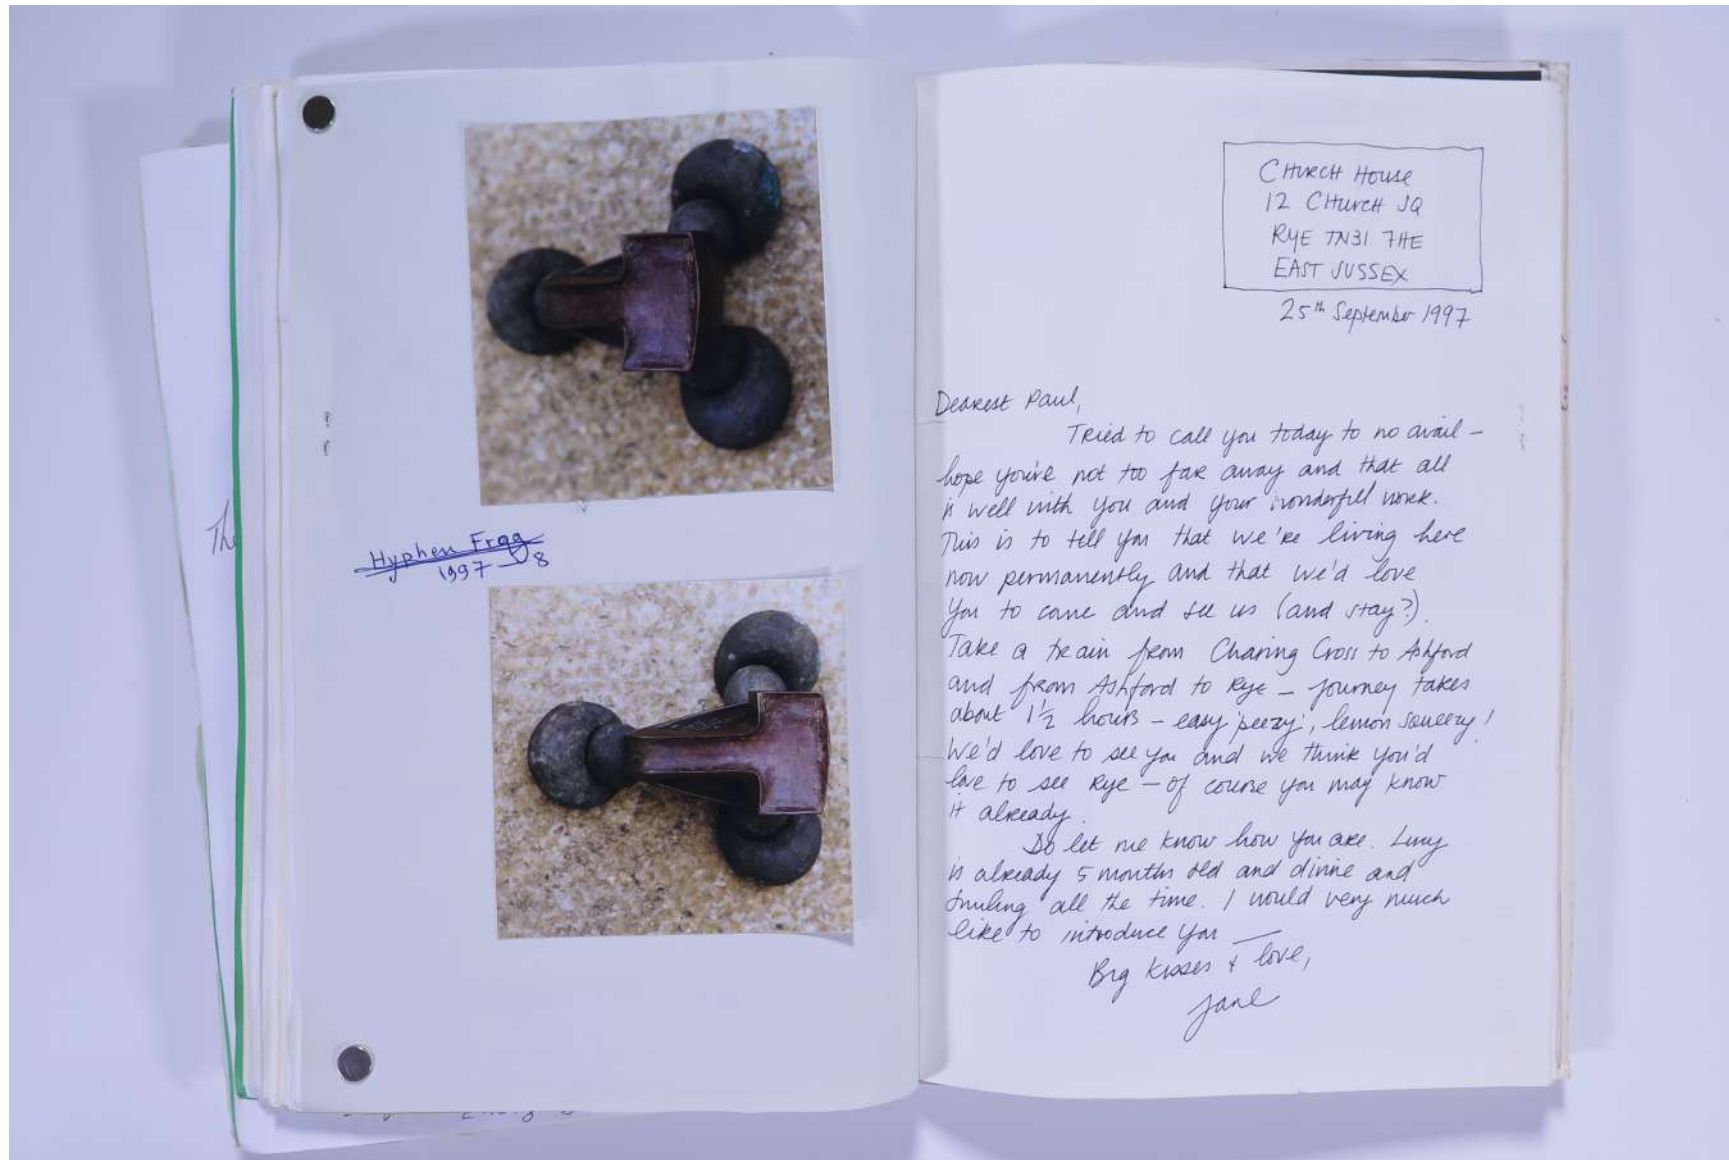 Th
Hyphen Frog
1997-8
CHURCH HOUSE
12 CHURCH SQ
RYE TN31 7HE
EAST SUSSEX
25th September 1997
Dearest Paul,
Tried to call you today to no avail –
hope you're not too far away and that all
is well with you and your wonderful work.
This is to tell you that we're living here
now permanently and that we'd love
you to come and see us (and stay?).
Take a train from Charing Cross to Ashford
and from Ashford to Rye – journey takes
about 1½ hours – easy peezy, lemon squeezy!
We'd love to see you and we think you'd
love to see Rye – of course you may know
it already.
Do let me know how you are. Lucy
is already 5 months old and divine and
smiling all the time. I would very much
like to introduce you —
Big kisses + love,
Jane